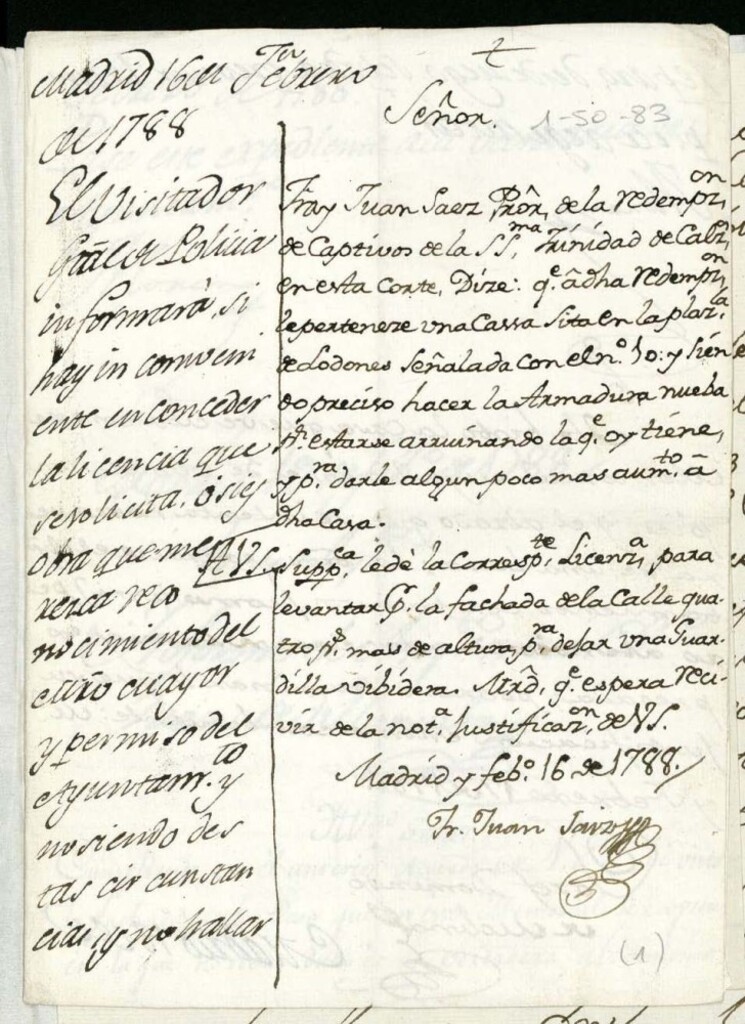 Madrid 16 de Febrero
de 1788
El Visitador
Gral de Policia
informará, si
hay in combeni
ente en conceder
la licencia que
se solicita, ó si es
obra que me
rezca reco
nocimiento del
Mro mayor
y permiso del
Ayuntam.to y
no siendo des
tas circunstan
cias, y no hallar
Señor. 1-50-83
Fray Juan Saez Pror, de la redempz.on
de Captivos de la SS.ma Trinidad de Calz.
en esta Corte, Dize: q.e â dha redempz.on
le perteneze una Cassa sita en la plaz.la
de Lodones señalada con el n.o 10: y sien
do preciso hacer la Armadura nueba
p.r estarse arruinando la q.e oy tiene,
y p.ra darle algun poco mas aum.to â
dha Casa.
A VS. Supp.ca le dè la Corresp.te Licenz.a para
levantar p.r la fachada de la Calle qua-
tro p.s mas de altura, p.ra dejar una Guar-
dilla vibidera. Mrd, q.e espera reci-
vir de la not.a Justificaz.on de VS.
Madrid y feb.o 16 de 1788.
Fr. Juan Saiz
(1)